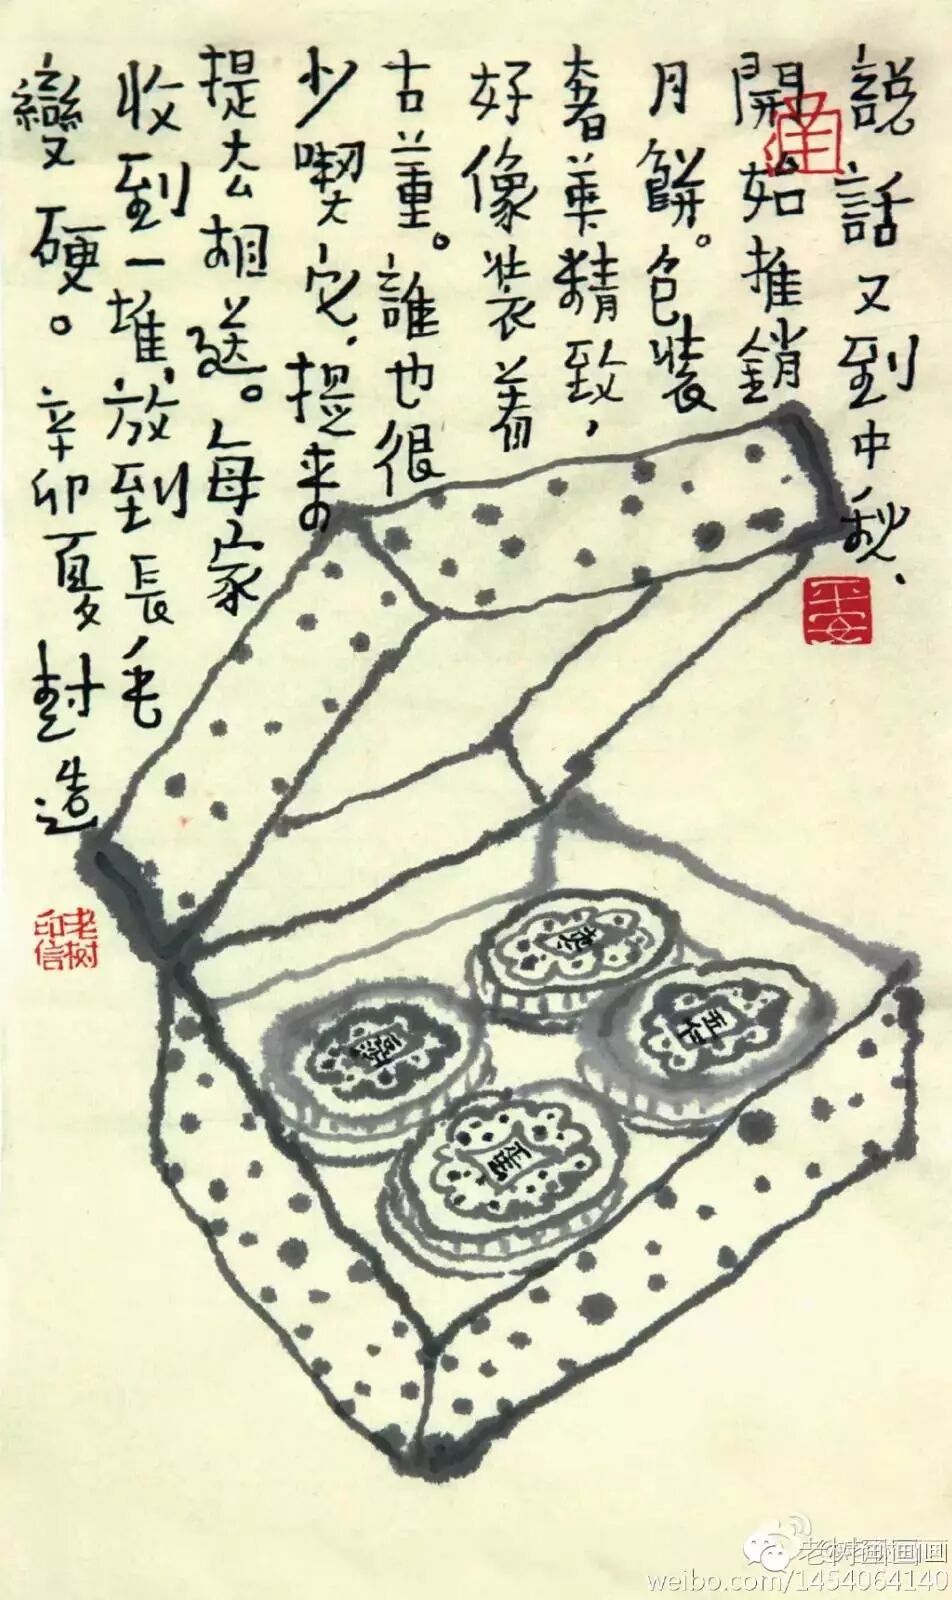 説話又到中秋、
開始推銷
月餅。包裝
奢華精致，
好像裝着
古董。誰也很
少喫它，提来
提去相送。每家
收到一堆，放到長毛
變硬。辛卯夏封造
平安
老树
印信
蛋黄
五仁
@老树画画
weibo.com/1454064140